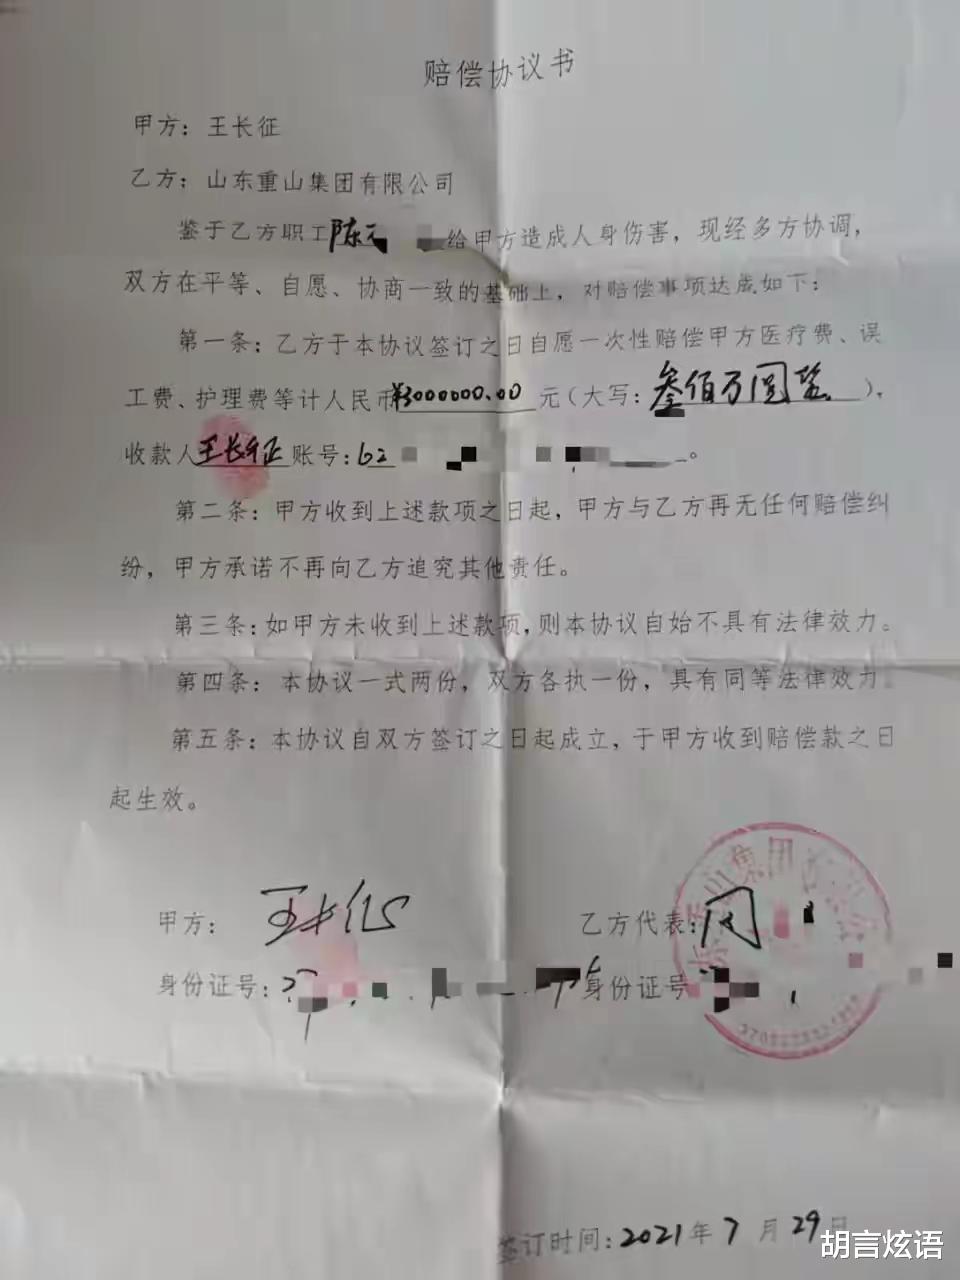 赔偿协议书
甲方：王长征
乙方：山东重山集团有限公司
鉴于乙方职工陈元给甲方造成人身伤害，现经多方协调，
双方在平等、自愿、协商一致的基础上，对赔偿事项达成如下：
第一条：乙方于本协议签订之日自愿一次性赔偿甲方医疗费、误
工费、护理费等计人民币¥3000000.00元（大写：叁佰万圆整），
收款人王长征账号：62。
第二条：甲方收到上述款项之日起，甲方与乙方再无任何赔偿纠
纷，甲方承诺不再向乙方追究其他责任。
第三条：如甲方未收到上述款项，则本协议自始不具有法律效力。
第四条：本协议一式两份，双方各执一份，具有同等法律效力。
第五条：本协议自双方签订之日起成立，于甲方收到赔偿款之日
起生效。
甲方：王长征 乙方代表：周
身份证号：3 身份证号
山集团
签订时间：2021年7月29日
胡言炫语